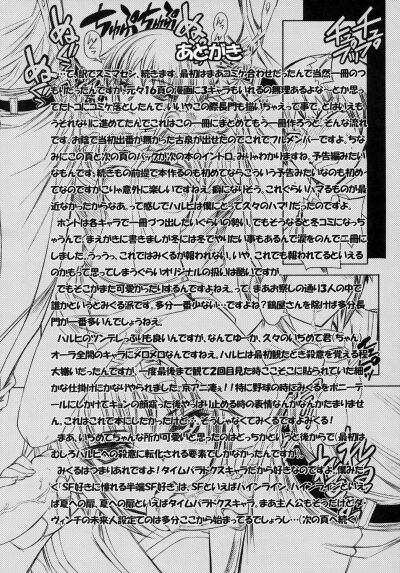 あとがき
…と訳でスミマセン、続きます。最初はまあコミケ合わせだったんで当然一冊のつ
もりだったんですが、元々16頁の漫画に3キャラもいれるの無理あるよな～とか思っ
てたトコにコミケ落としたんで、いいやこの際長門も描いちゃえって事で、とはいえも
うそれなりに進めてたんでこれはこの一冊にまとめてもう一冊作ろうと、そんな流れ
です。お陰で当初出番が無かった古泉が出せたのでこれでフルメンバーですよ。ちな
みにこの頁と次の頁のバックが次の本のイントロ、みじゃわかりますね、予告編みたい
なもんです。続きもの前提で本作るのも初めてならこういう予告みたいなのも初め
てなのですがこりゃ意外に楽しいですねえ。癖になりそう。これぐらいハマるものが最
近なかったからなあ、って感じでハルヒは僕にとって久々のハマリだったのですよ。
ホントは各キャラで一冊づつ出したいぐらいの勢い、でもそうなると冬コミになっち
ゃうんで、まえがきに書きましたが冬には冬でやりたい事もあるんで涙をのんで二冊に
しました。うぅっ。これではみくるが報われない。いや、これでも報われてるといえる
のかもって思ってしまうぐらいオリジナルの扱いは酷いですが。
でもそこがまた可愛かったりするんですよねえ。まあお察しの通り3人の中で
誰かというとみくる派です。多分一番少ない…ですよね？鶴屋さんを除けば多分長
門が一番多いんでしょうねえ。
ハルヒのツンデレっぷりも良いんですが、なんてゆーか、久々のいぢめて君(ちゃん)
オーラ全開のキャラにメロメロなんですねえ。ハルヒは最初観たとき殺意を覚える程
大嫌いだったんですが、一度最後まで観て2回目見た時ここそこに貼られていた細
かな仕掛けにかなりやられました。京アニ凄ぇ!!特に野球の時はみくるをポニーテ
ールにしてキョンの顔窺った後やっぱ止める時の表情なんかたまりませ
ん。これはこれで本にしたかったけど…っ、そうじゃなくてみくるですみくる！
まあ、いぢめてちゃんな所が可愛いと思ったのはどっちかというと後からで（最初は
むしろハルヒへの殺意に転化される要素でしかなかったんですが）、
みくるはつまりあれですよ！タイムパラドクスキャラだから好きなのですよ。僕みた
く「SFに憧れる半端SF好き」は、SFといえばハインライン、ハインラインといえ
ば夏への扉、夏への扉といえばタイムパラドクスキャラ。まあ主人公もそうだけどダ
ヴィンチの未来人設定てのは多分ここから始まってるでしょうし…(次の頁へ続く)